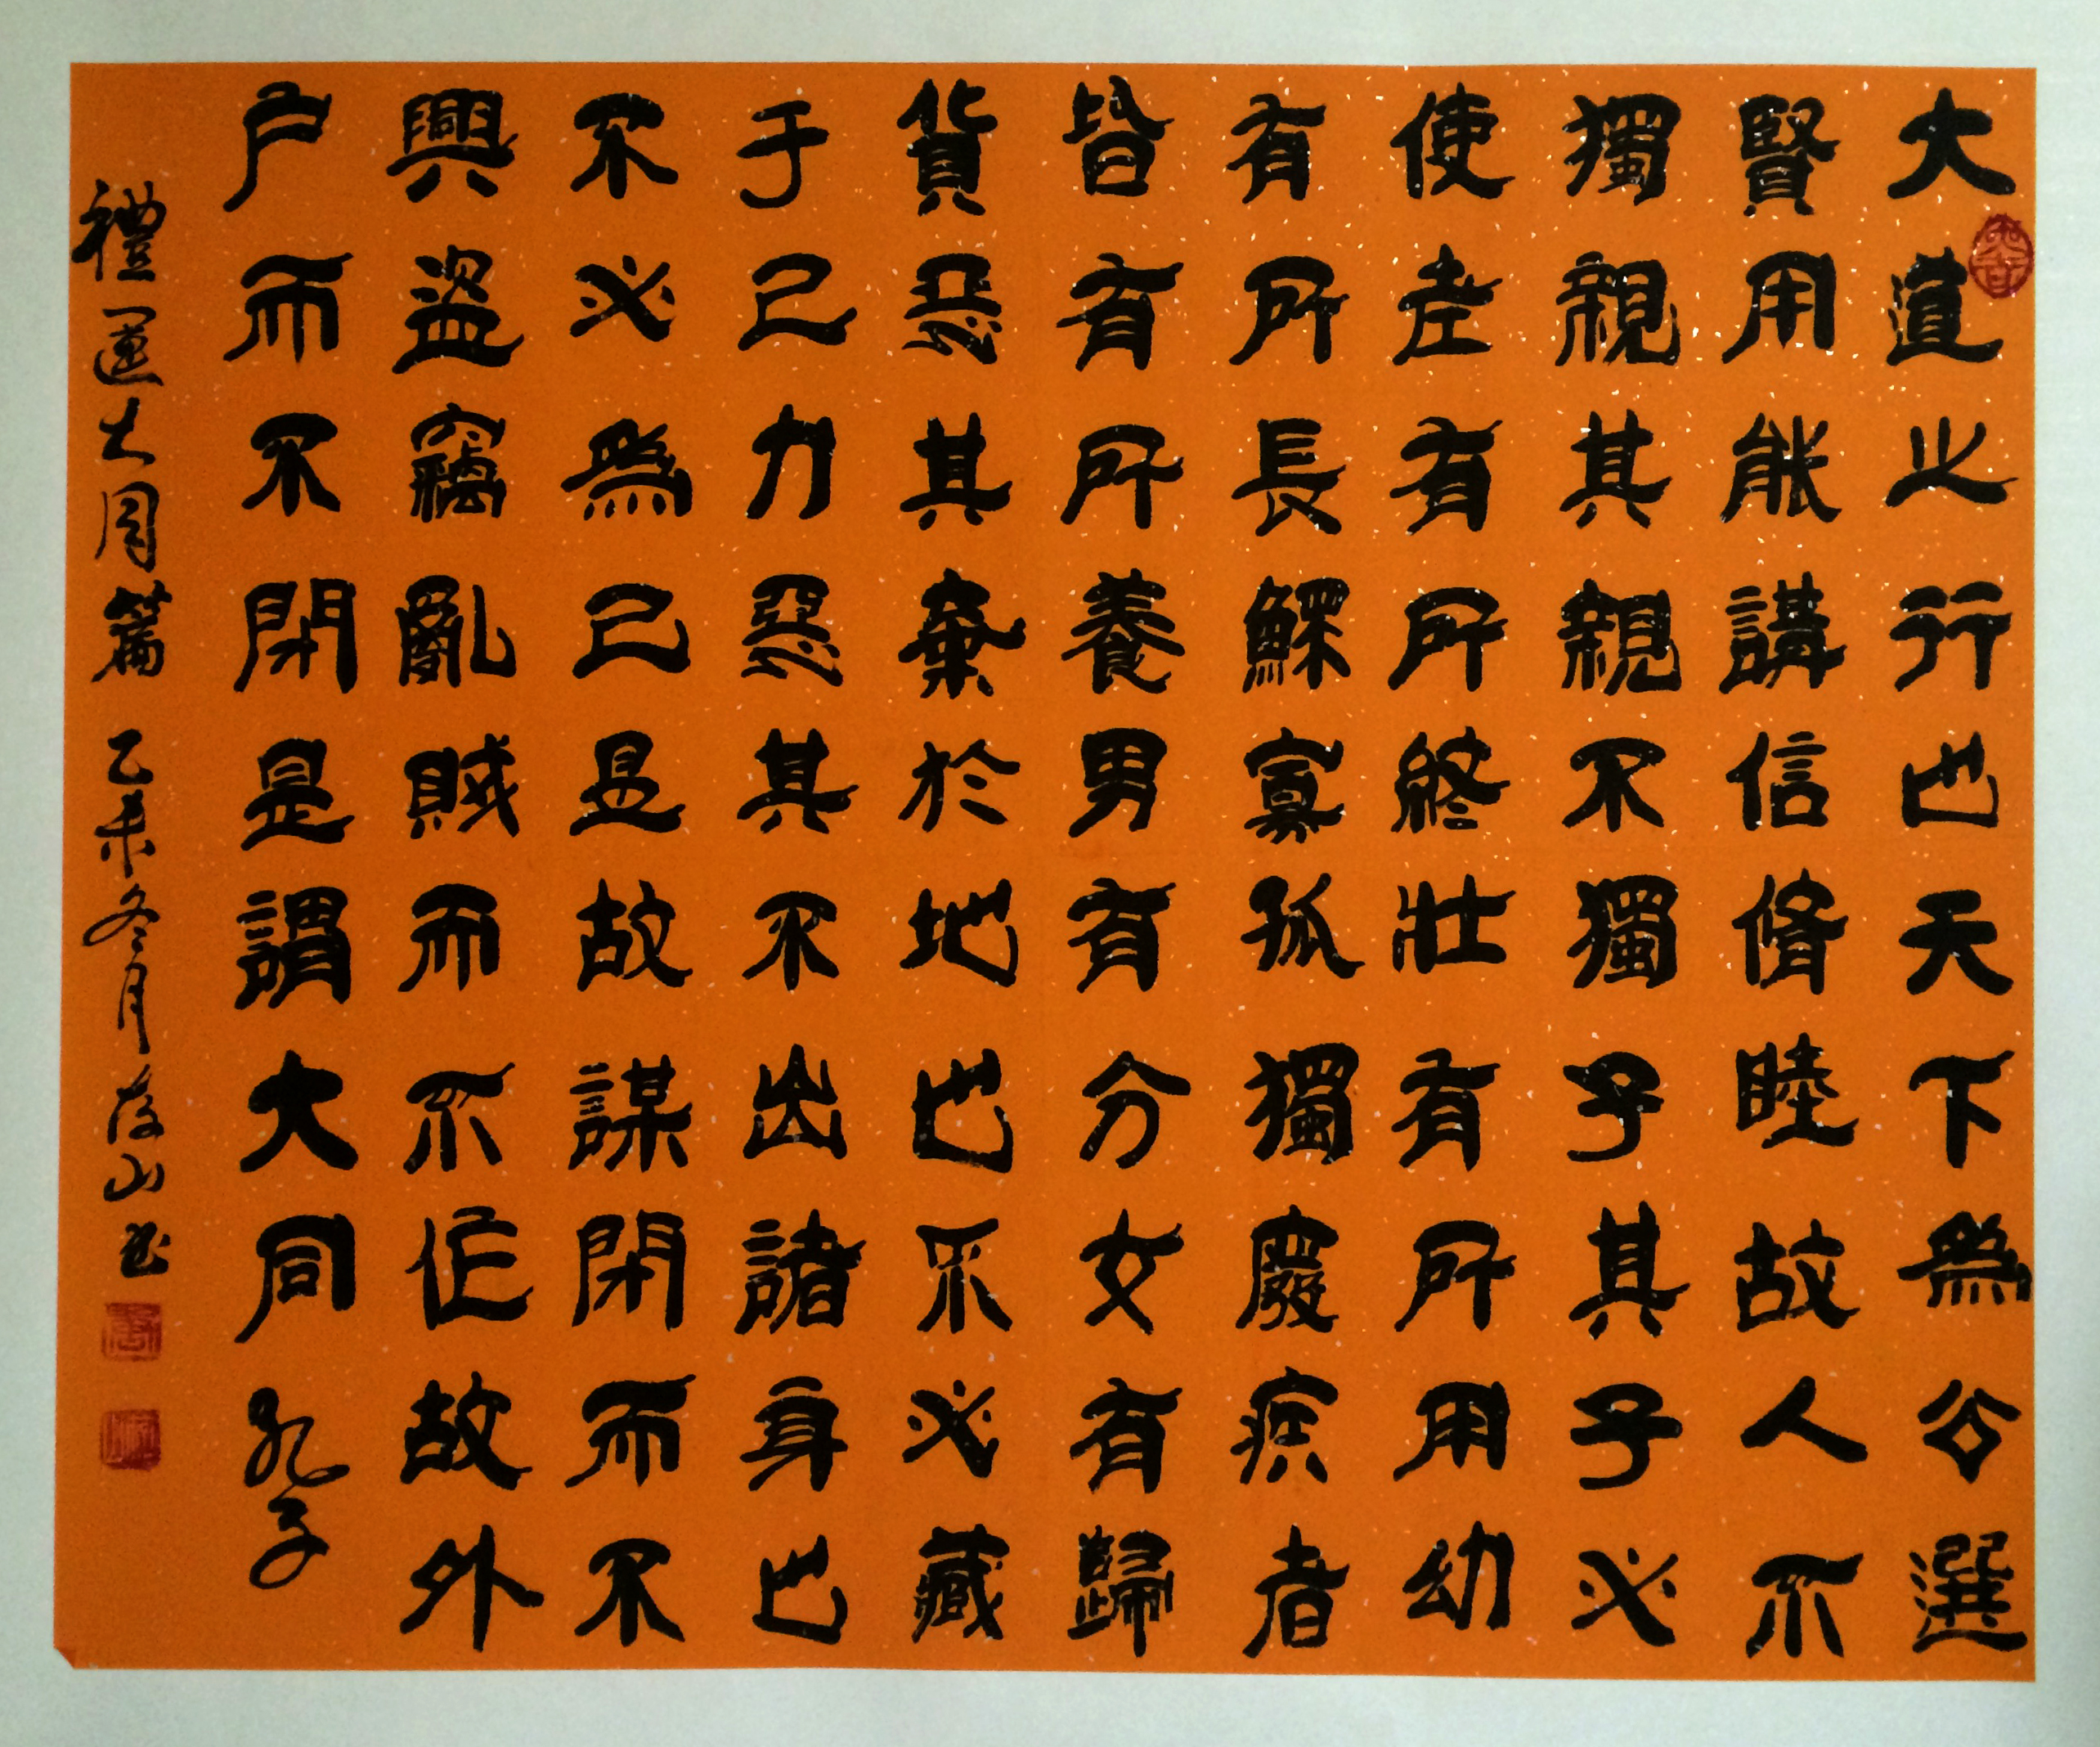 大道之行也天下為公選
賢用能講信脩睦故人不
獨親其親不獨子其子必
使老有所終壯有所用幼
有所長鰥寡孤獨廢疾者
皆有所養男有分女有歸
貨惡其棄於地也不必藏
于己力惡其不出諸身也
不必為己是故謀閉而不
興盜竊亂賊而不作故外
户而不閉是謂大同孔子
禮運大同篇 乙未冬月山书